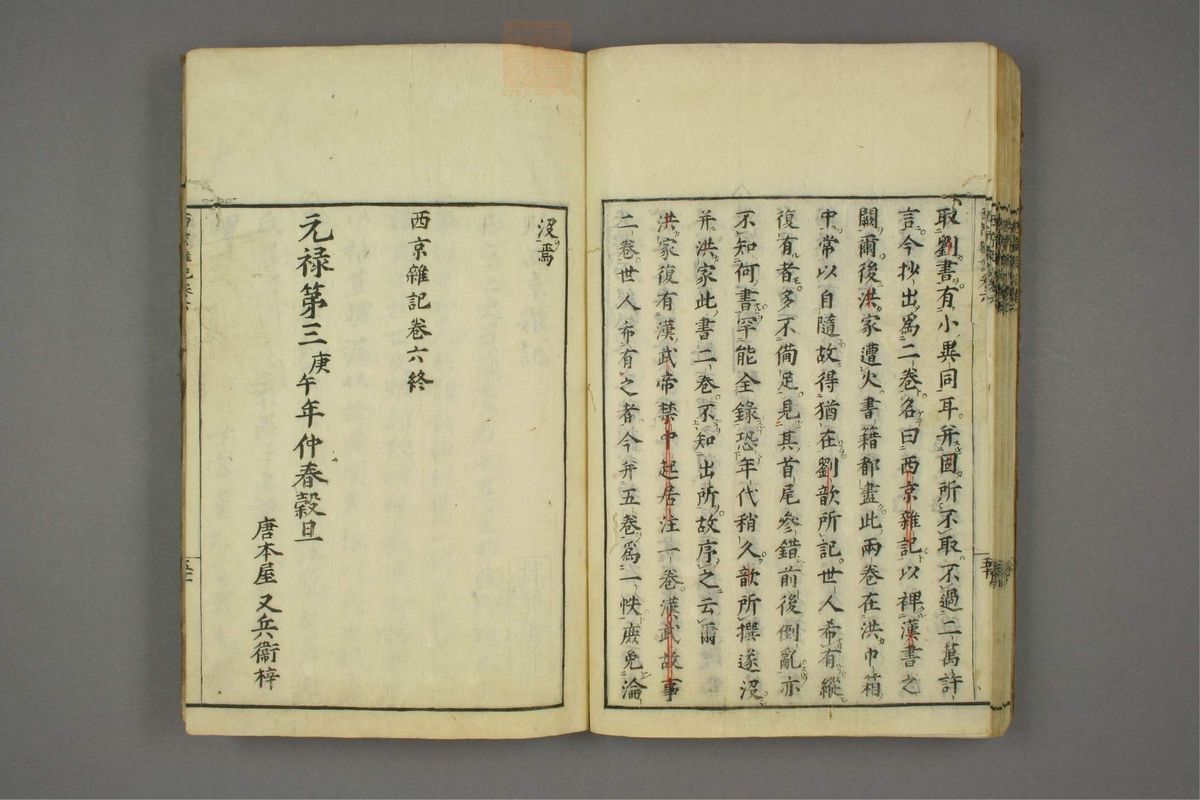 取劉書有小異同耳并固所不取不過二萬許
言今抄出爲二卷名曰西京雜記以裨漢書之
闕爾後洪家遭火書籍都盡此兩卷在洪巾箱
中常以自隨故得猶在劉歆所記世人希有縱
復有者多不備足見其首尾參錯前後倒亂亦
不知何書罕能全錄恐年代稍久歆所撰遂沒
并洪家此書二卷不知出所故序之云爾
洪家復有漢武帝禁中起居注一卷漢武故事
二卷世人希有之者今并五卷爲一帙庻免淪
沒焉
西京雜記卷六終
元禄第三庚午年仲春穀旦
唐本屋又兵衞梓